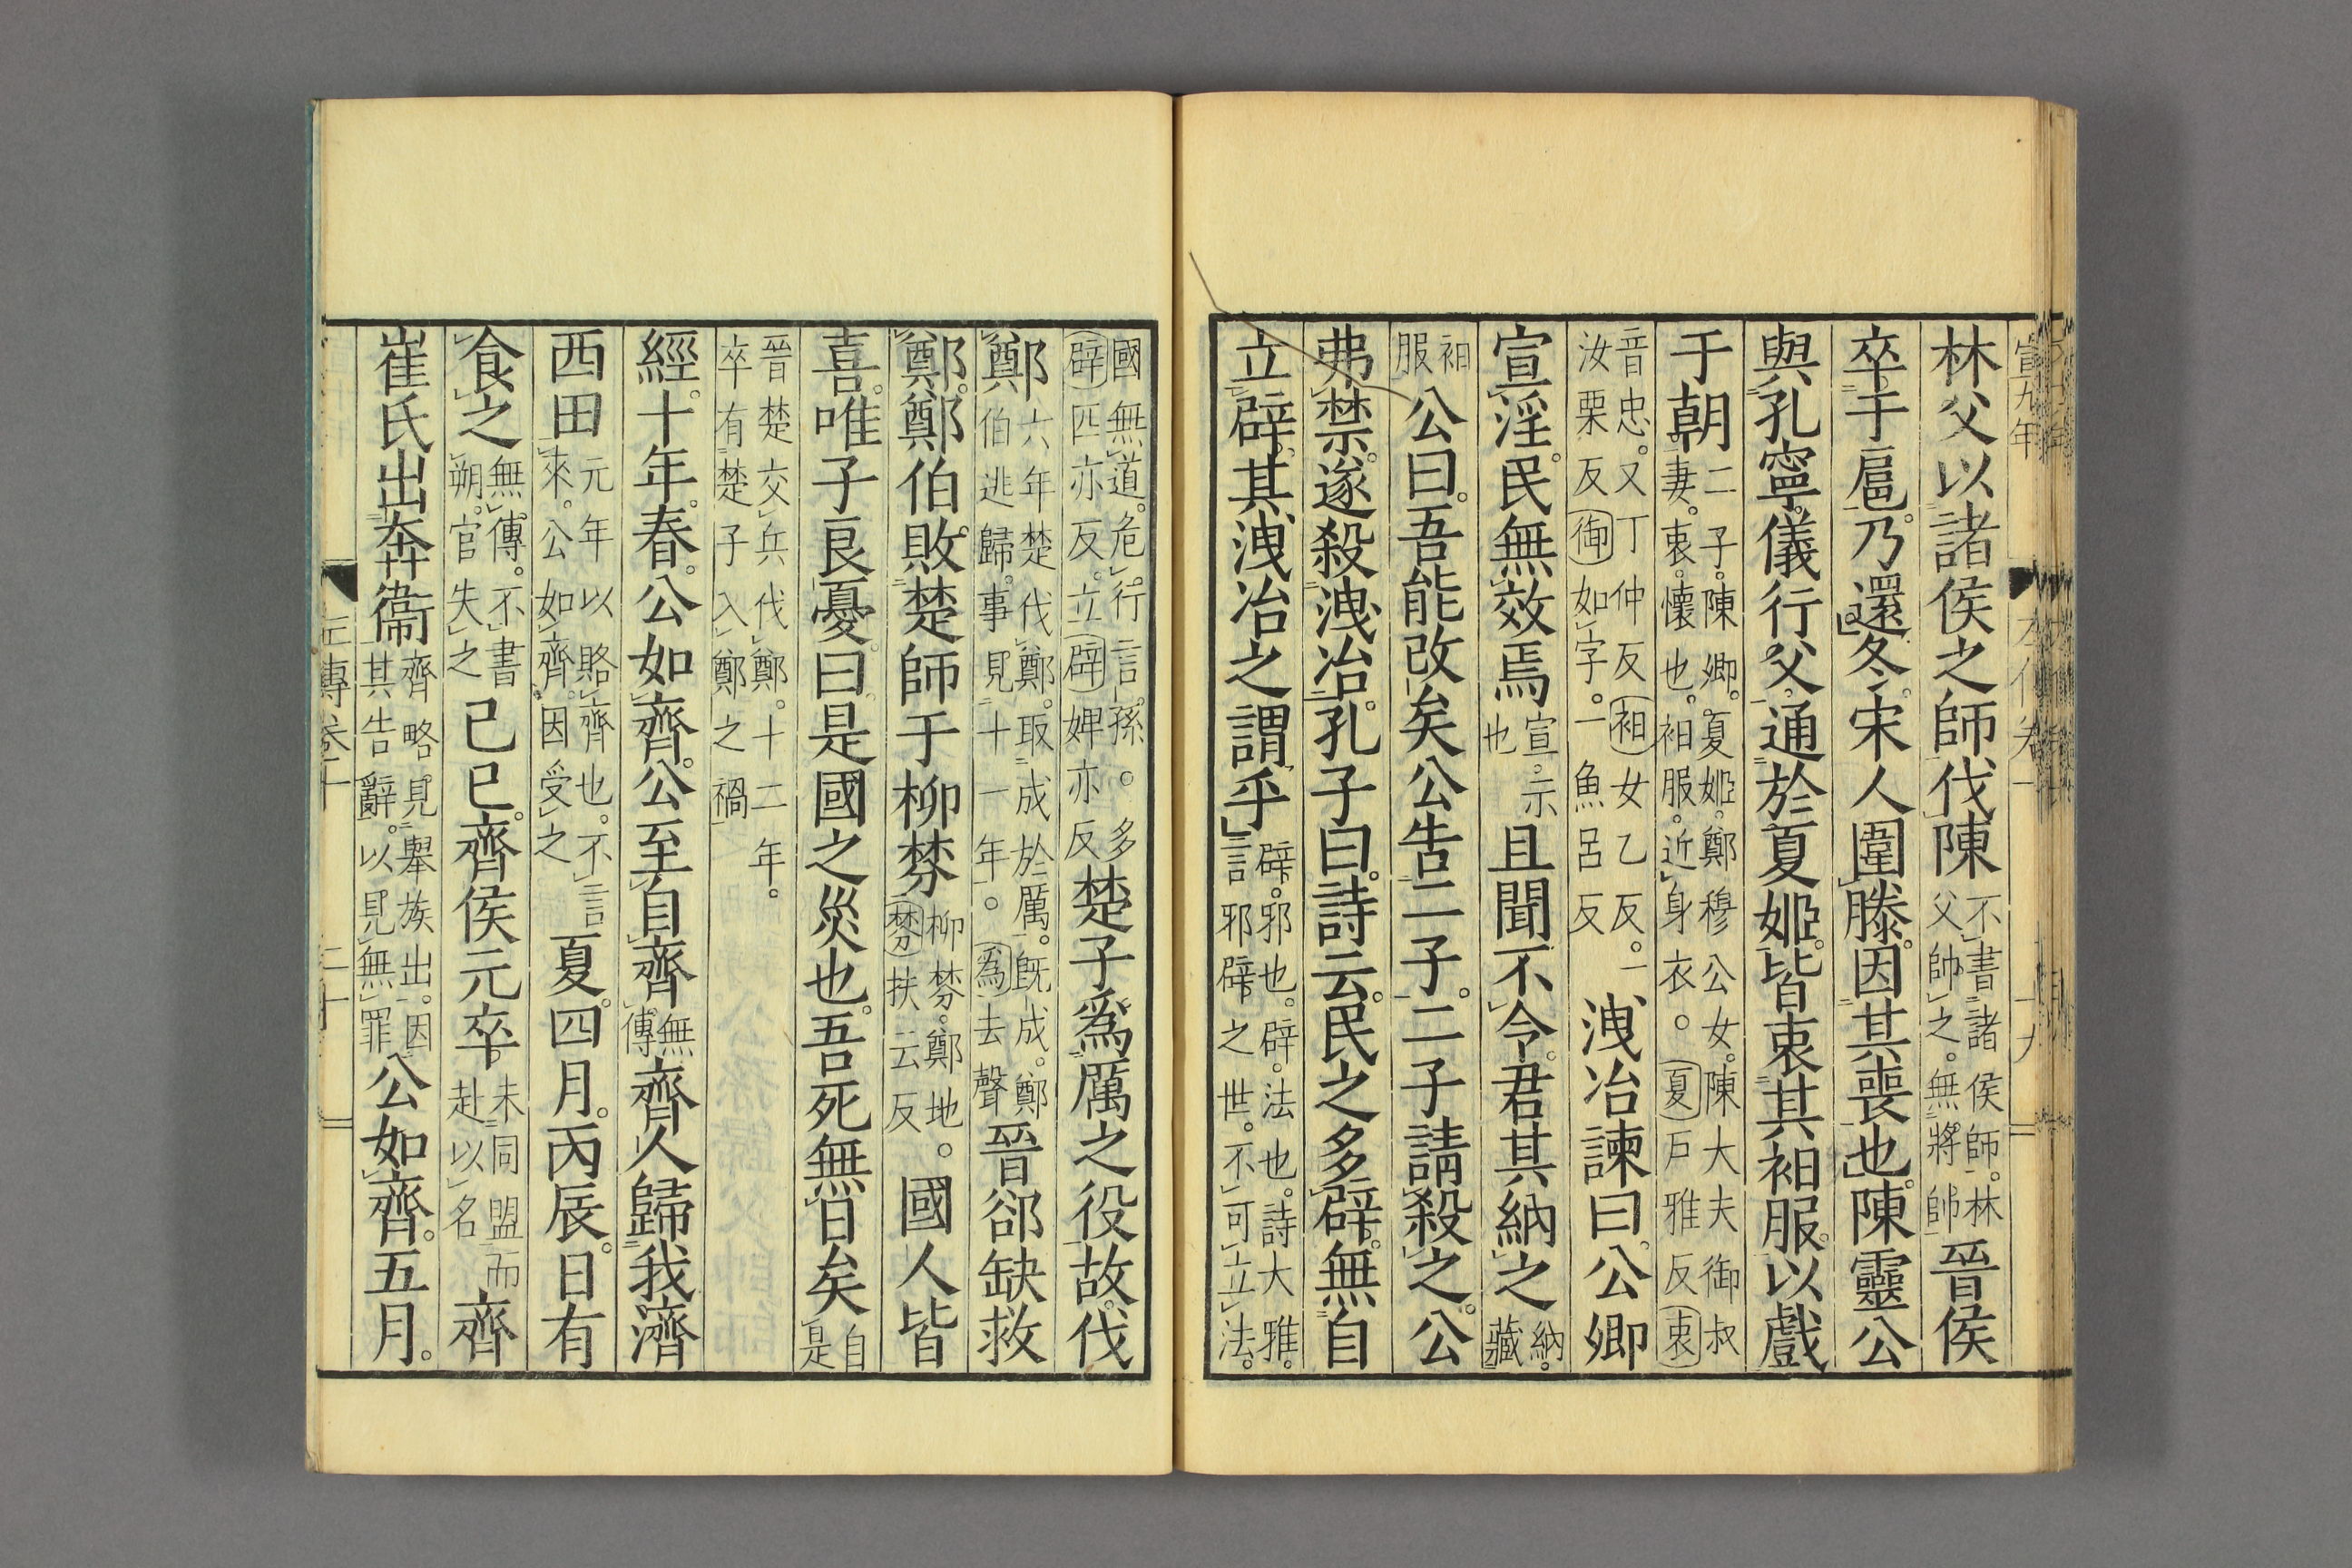 宣九年
林父以諸侯之師伐陳不書諸侯師。林父帥之。無將帥晉侯
卒于扈。乃還。冬。宋人圍滕。因其喪也。陳靈公
與孔寧。儀行父。通於夏姬。皆衷其衵服。以戲
于朝二子。陳卿。夏姬。鄭穆公女。陳大夫御叔妻。衷。懷也。衵服。近身衣。。夏戶雅反衷
音忠。又丁仲反衵女乙反。一汝栗反御如字。一魚呂反洩冶諫曰。公卿
宣淫。民無效焉宣。示也且聞不令。君其納之納。藏
衵服公曰。吾能改矣公告二子。二子請殺之。公
弗禁。遂殺洩冶。孔子曰。詩云。民之多辟。無自
立辟。其洩冶之謂乎辟。邪也。辟。法也。詩大雅。言邪辟之世。不可立法。
國無道。危行言孫。多辟匹亦反。立辟婢亦反楚子爲厲之役。故伐
鄭六年楚伐鄭。取成於厲。既成。鄭伯逃歸。事見十一年。。爲去聲晉郤缺救
鄭。鄭伯敗楚師于柳棼柳棼。鄭地。棼扶云反國人皆
喜。唯子良憂曰。是國之災也。吾死無日矣自是
晉楚交兵伐鄭。十二年。卒有楚子入鄭之禍
經。十年。春。公如齊。公至自齊無傳。齊人歸我濟
西田元年以賂齊也。不言來。公如齊。因受之夏。四月。丙辰。日有
食之無傳。不書朔。官失之己巳。齊侯元卒。未同盟而赴以名齊
崔氏出奔衞齊略見舉族出。因其告辭。以見無罪公如齊。五月。
左傳卷十
二十